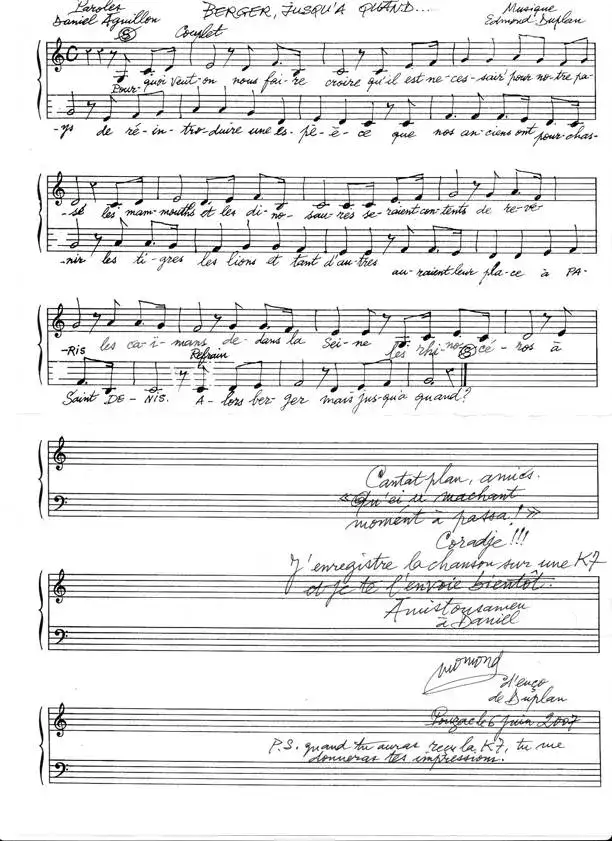 Paroles
Daniel Aguillon
BERGER, JUSQU'A QUAND...
Musique
Edmond Duplan
Couplet
Pour-quoi veut-on nous fai-re croire qu'il est ne-ces-sair' pour no-tre pa-
-ys de ré-in-tro-duire une es-pè-ce que nos an-ciens ont pour-chas-
-sé les mam-mouths et les di-no-sau-res se-raient con-tents de re-ve-
-nir les ti-gres les lions et tant d'au-tres au-raient leur pla-ce à PA-
-RIS les ca-ï-mans de-dans la Sei-ne les rhi-no-cé-ros à
Refrain
Saint DE-NIS. A-lors ber-ger mais jus-qu'à quand?
Cantat plan, amics.
« Qu'ei u machant
momént à passa! »
Coradje!!!
J'enregistre la chanson sur une K7
et je te l'envoie bientôt.
Amistousameu
à Daniel
Momond
d'enço
de Duplan
Pouzac le 6 juin 2007
P.S. quand tu auras reçu la K7, tu me
donneras tes impressions.